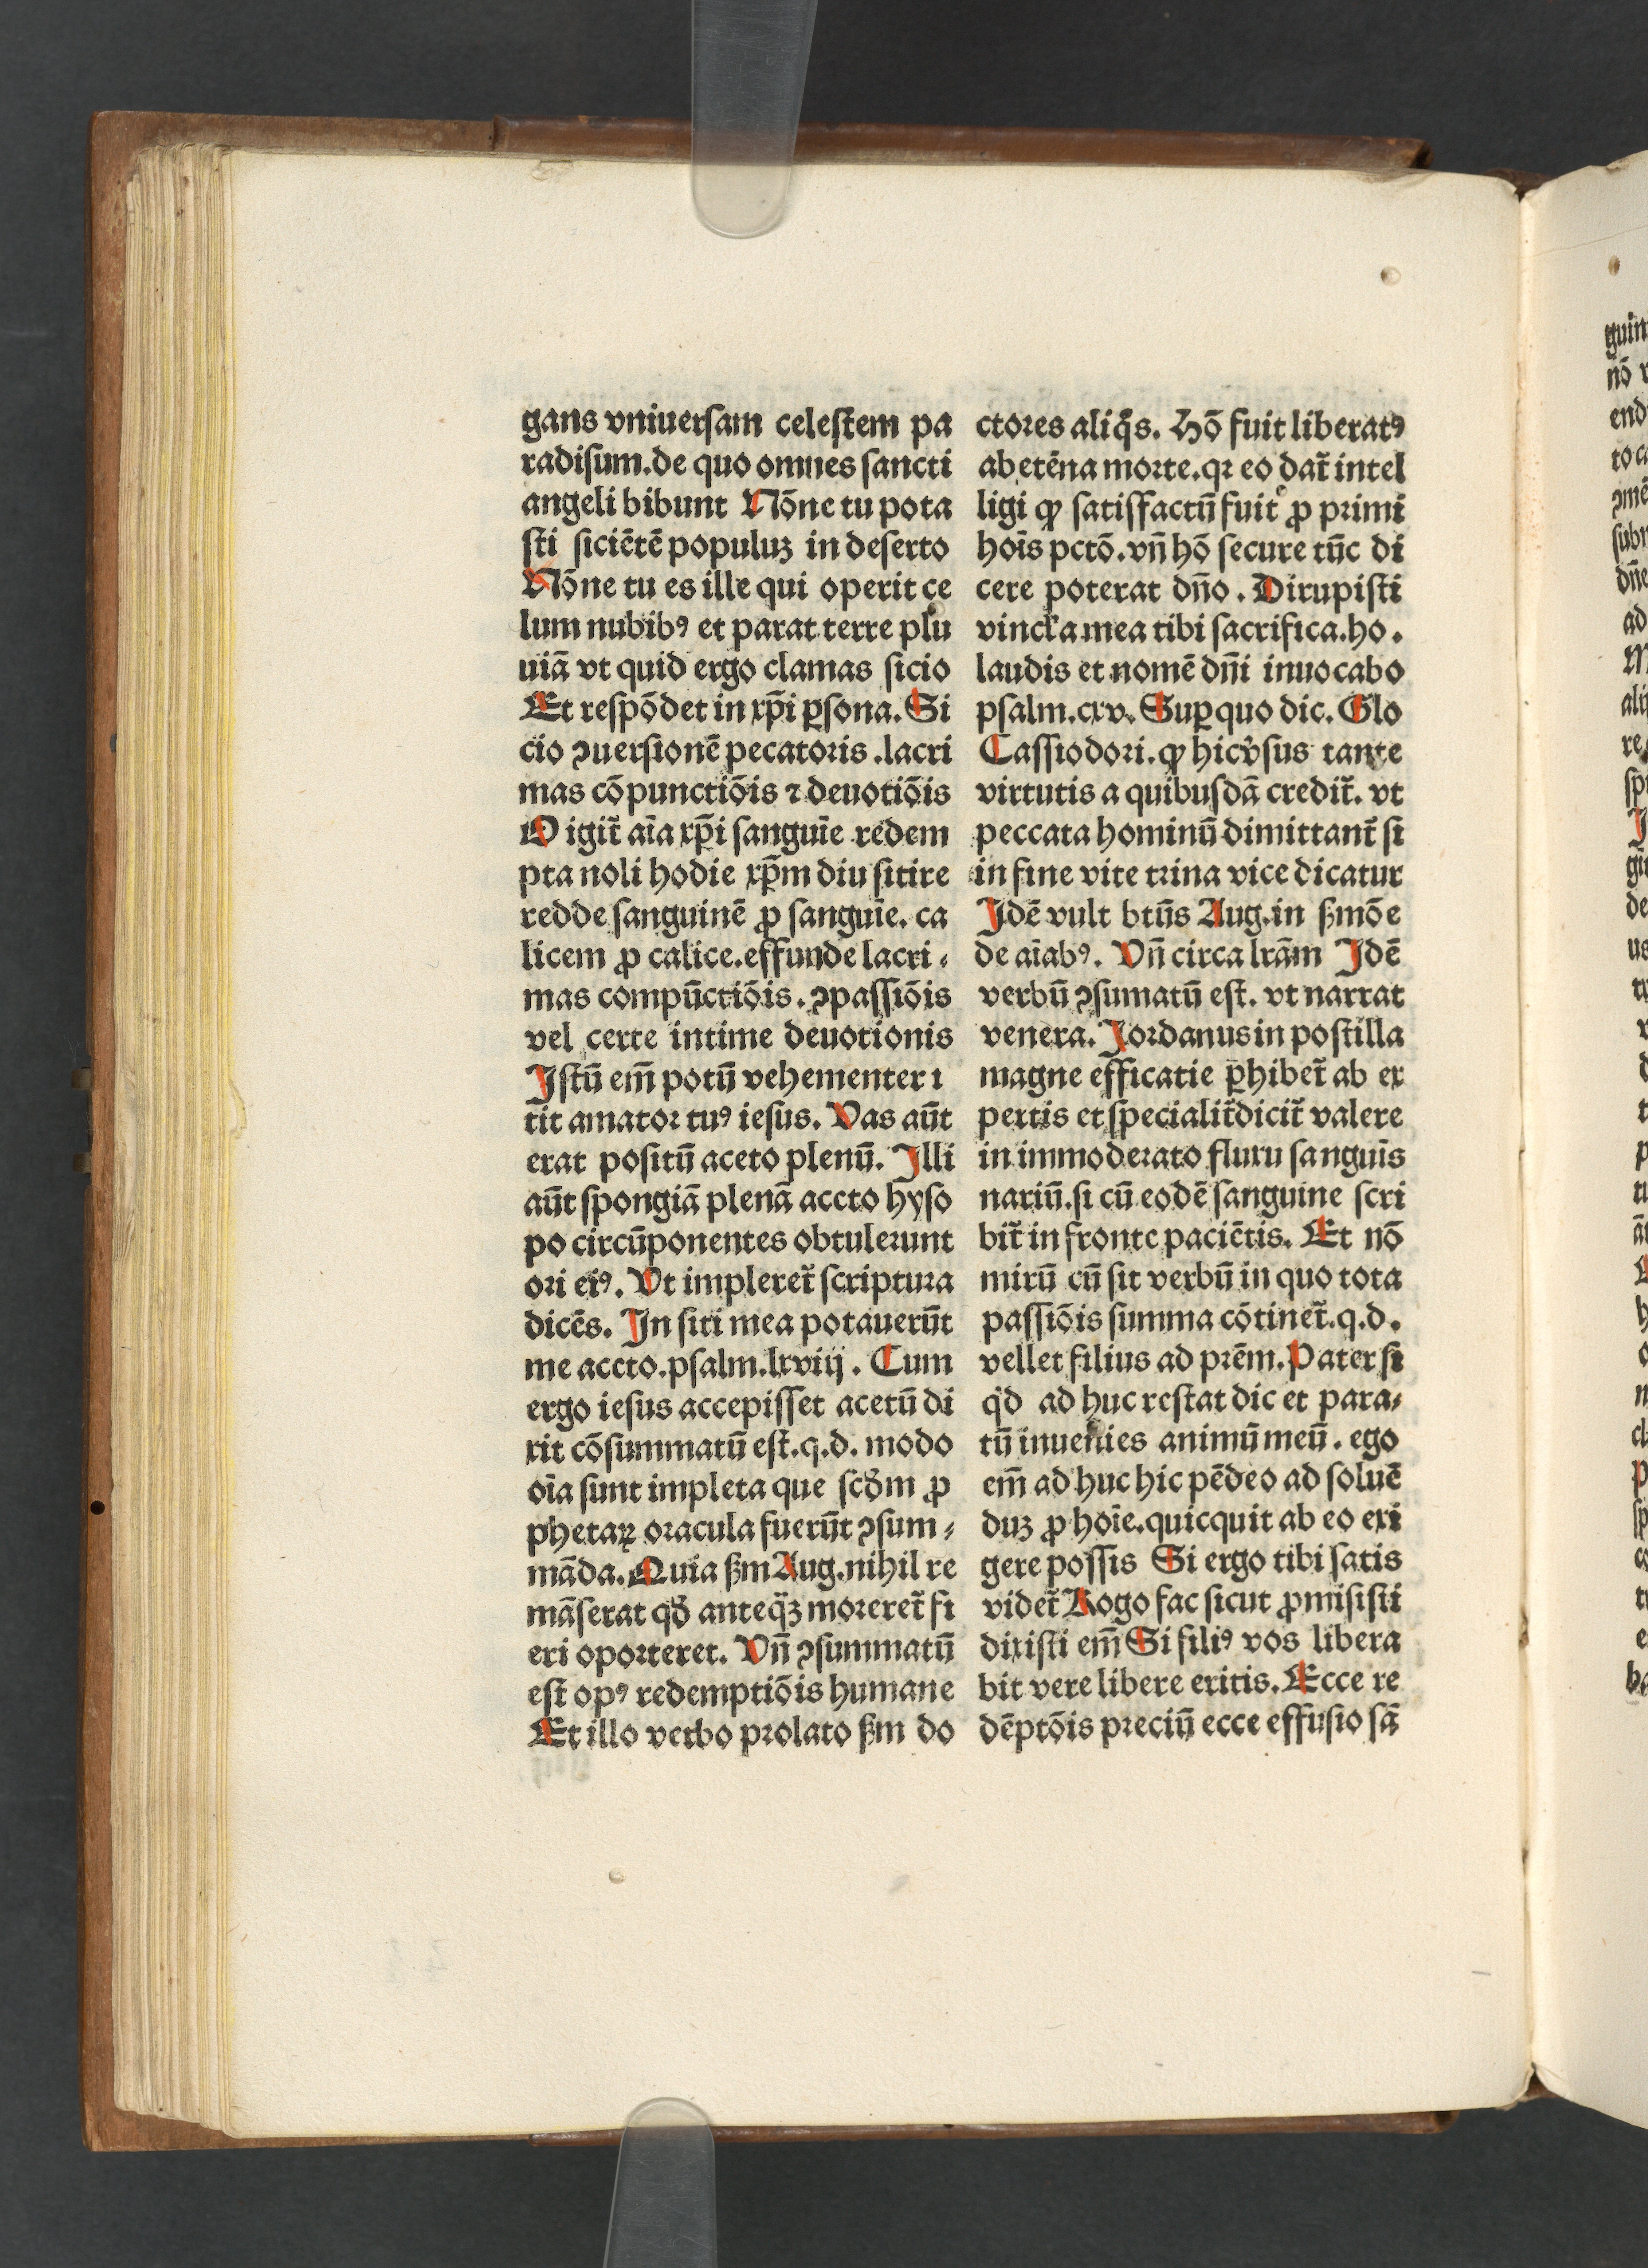 gans vniuersam celestem pa
radisum.de quo omnes sancti
angeli bibunt Nōne tu pota
sti siciētē populuꝫ in deserto
Nōne tu es ille qui operit ce
lum nubibꝰ et parat terre plu
uiā vt quid ergo clamas sicio
Et respōdet in xp̄i ꝑsona. Si
cio ꝯuersionē pecatoris .lacri
mas cōpunctiōis ⁊ deuotiōis
O igit̃ aīa xp̄i sanguīe redem
pta noli hodie xp̄m diu sitire
redde sanguinē ꝓ sanguīe. ca
licem ꝓ calice.effunde lacri⸗
mas compūctiōis. ꝯpassiōis
vel certe intime deuotionis
Istū em̄ potū vehementer ı
tit amator tuꝰ iesus. Vas aūt
erat positū aceto plenū. Illi
aūt spongiā plenā accto hyso
po circūponentes obtulerunt
ori eiꝰ. Vt impleret̃ scriptura
dicēs. In siti mea potauerūt
me accto.psalm.lxviij. Cum
ergo iesus accepisset acetū di
xit cōsummatū est.q.d. modo
oīa sunt impleta que scꝺm ꝓ
phetaꝝ oracula fuerūt ꝯsum⸗
māda. Quia ẜm Aug.nihil re
māserat qꝺ anteq̄ꝫ moreret̃ fi
eri oporteret. Vn̄ ꝯsummatū
est opꝰ redemptiōis humane
Et illo verbo prolato ẜm do
ctores aliq̄s. Hō fuit liberatꝰ
ab etēna morte.qꝛ eo dat̃ intel
ligi ꝙ satisfactū fuit ꝓ primi
hoīs pctō.vn̄ hō secure tūc di
cere poterat dn̄o. Dirupisti
vincła mea tibi sacrifica.ho.
laudis et nomē dn̄i inuocabo
psalm.cxv. Suꝑ quo dic. Glo
Cassiodori.ꝙ hic v̓sus tante
virtutis a quibusdā credit̃. vt
peccata hominū dimittant̃ si
in fine vite trina vice dicatur
Idē vult btūs Aug.in ẜmōe
de aīabꝰ. Vn̄ circa lrām Idē
verbū ꝯsumatū est. vt narrat
venera. Iordanus in postilla
magne efficatie ꝑhibet̃ ab ex
pertis et specialit̃ dicit̃ valere
in immoderato fluxu sanguīs
nariū.si cū eodē sanguine scri
bit̃ in frontc paciētis. Et nō
mirū cū sit verbū in quo tota
passiōis summa cōtinet̃.q.d.
vellet filius ad prēm. Pater si
qd̓ ad huc restat dic et para⸗
tū inuenies animū meū. ego
em̄ ad huc hic pēdeo ad soluē
duꝫ ꝓ hoīe.quicquit ab eo exi
gere possis Si ergo tibi satis
videt̃ Rogo fac sicut ꝓmisisti
dixisti em̄ Si filiꝰ vos libera
bit vere libere eritis. Ecce re
dēptōis preciū ecce effusio sā